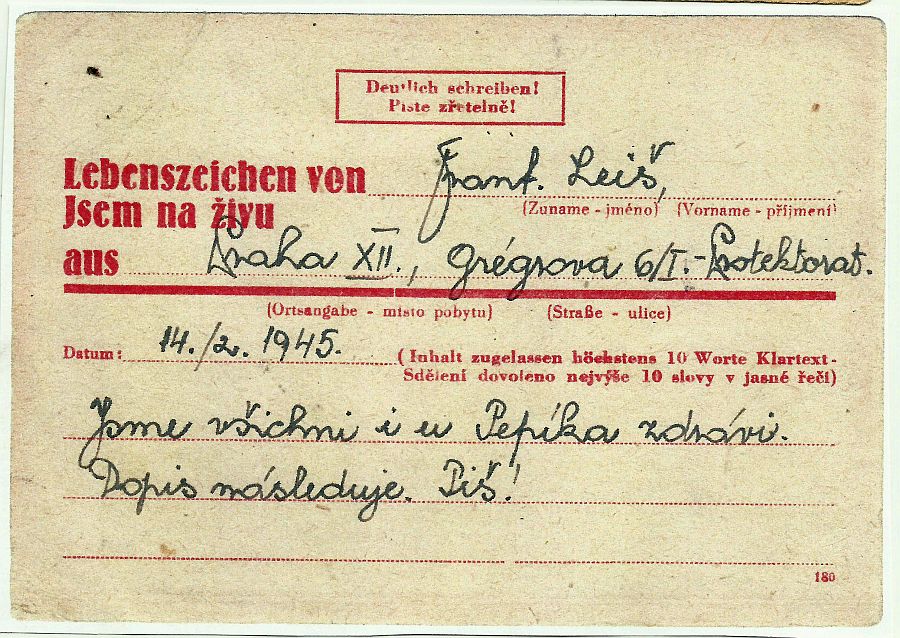 Deutlich schreiben!
Pište zřetelně!
Lebenszeichen von Fránt. Leiš,
Jsem na živu
(Zuname - jméno) (Vorname - příjmení)
aus Praha XII., Grégrova 6/I. - Protektorat.
(Ortsangabe - místo pobytu) (Straße - ulice)
Datum: 14./2. 1945. (Inhalt zugelassen höchstens 10 Worte Klartext -
Sdělení dovoleno nejvýše 10 slovy v jasné řeči)
Jsme všichni i u Pepíka zdrávi.
Dopis následuje. Piš!
180